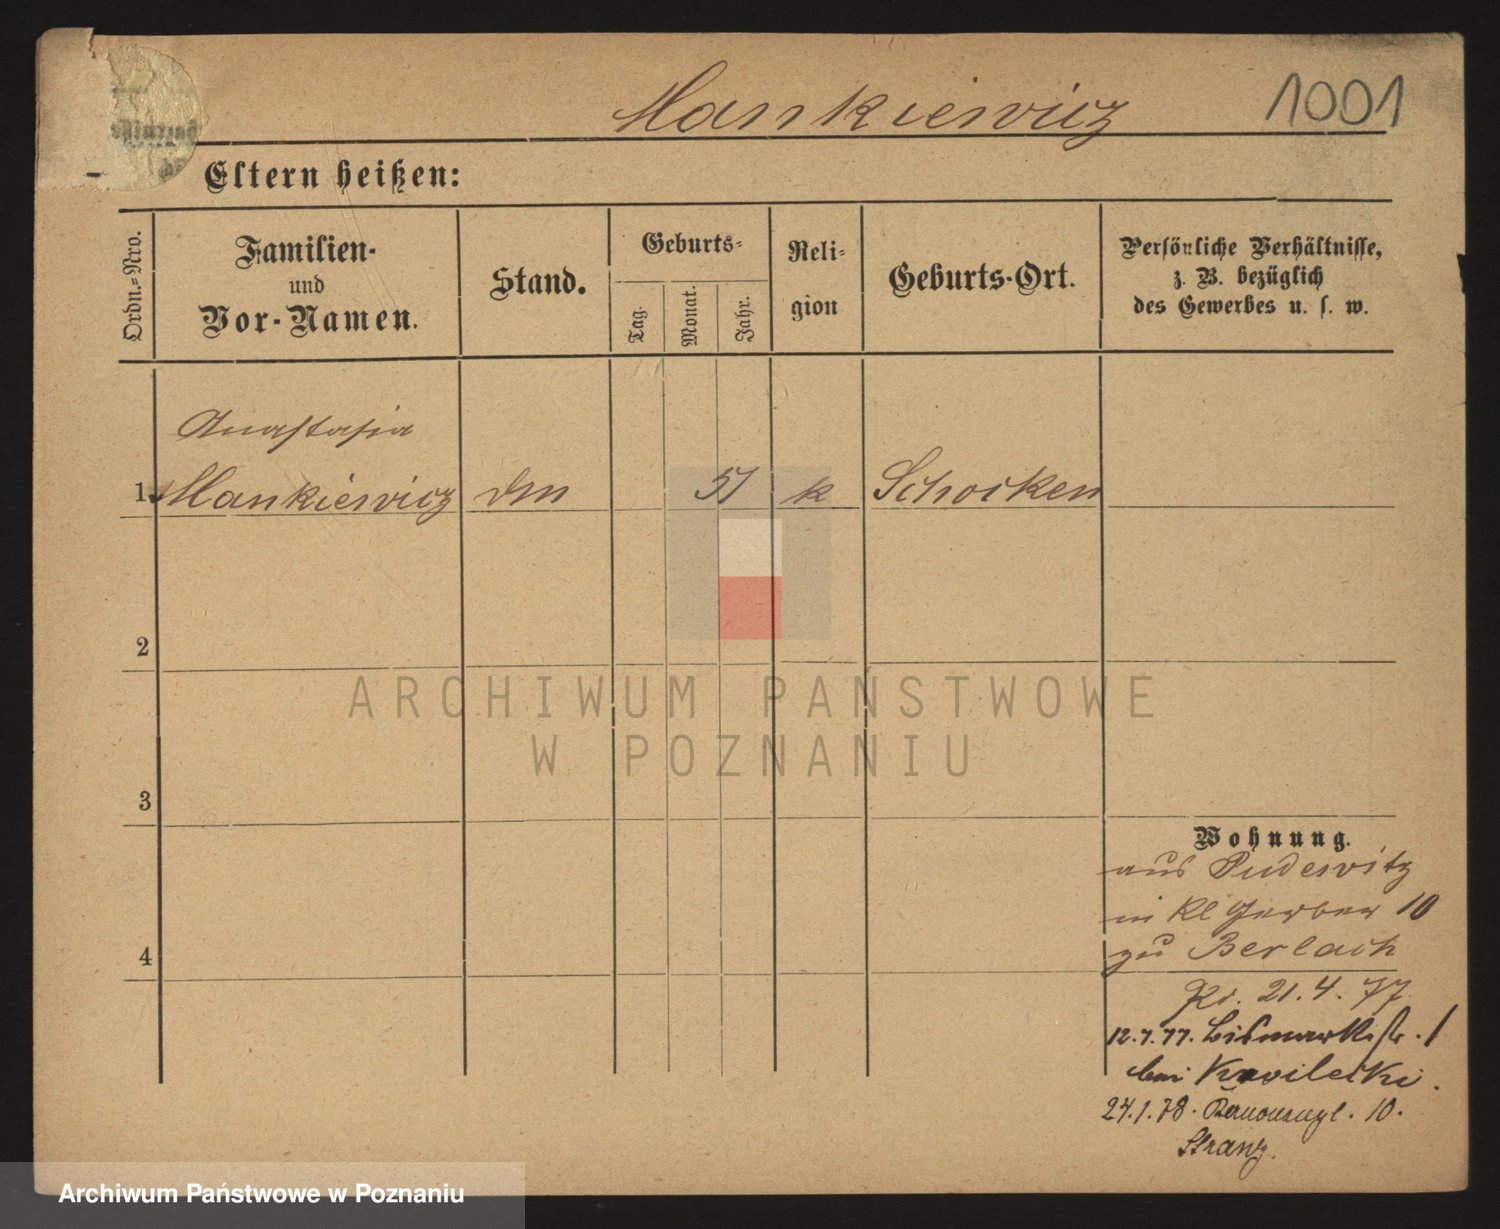 Mankiewicz
1001
Eltern heißen:
Ordn.-Nro.
Familien-
und
Vor-Namen.
Stand.
Geburts-
Tag.
Monat.
Jahr.
Reli-
gion
Geburts-Ort.
Persönliche Verhältnisse,
z. B. bezüglich
des Gewerbes u. s. w.
Anastasia
1 Mankiewicz 51 k Schocken
2
ARCHIWUM PAŃSTWOWE
W POZNANIU
3
Wohnung.
aus Pudewitz
in Kl Gerber 10
4
zu Berlach
21.4.77
12.7.77. Bismarckstr. 1
bei Kwilecki.
24.1.78. 10.
Stranz.
Archiwum Państwowe w Poznaniu